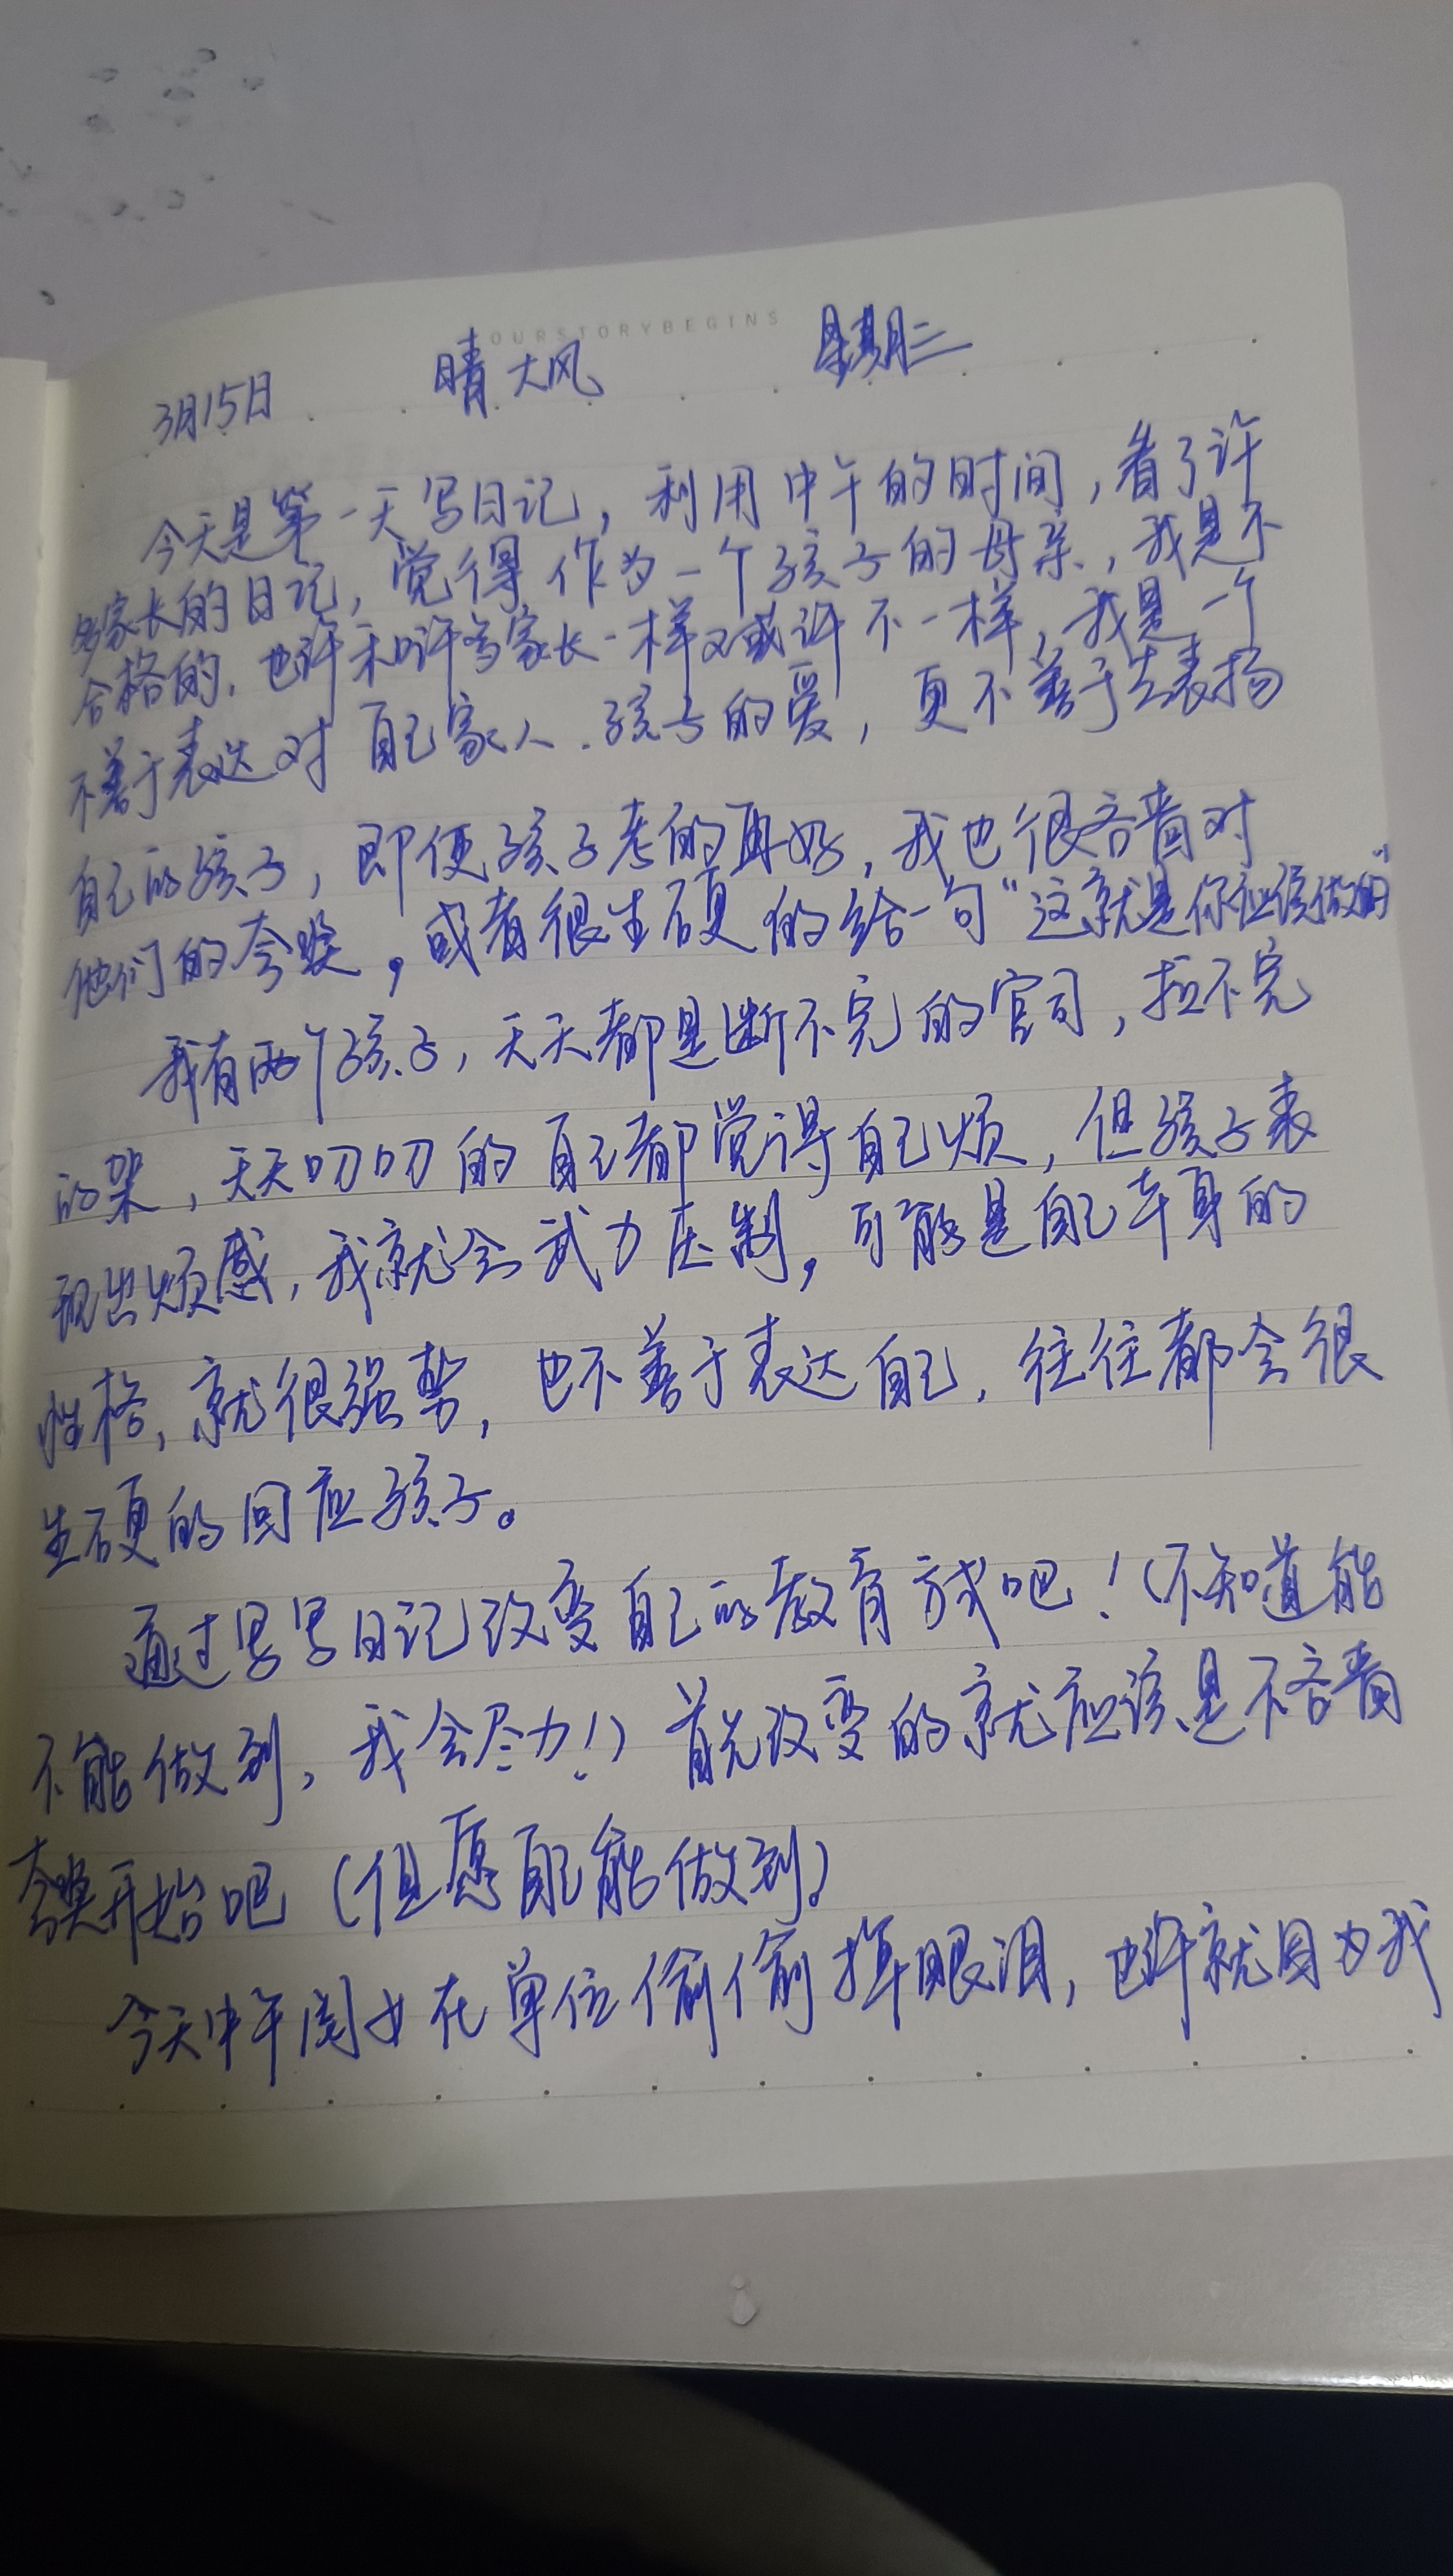 OURSTORYBEGINS
3月15日 晴 大风 星期二
今天是第一天写日记，利用中午的时间，看了许
多家长的日记，觉得作为一个孩子的母亲，我是不
合格的，也许和许多家长一样又或许不一样，我是一个
不善于表达对自己家人、孩子的爱，更不善于去表扬
自己的孩子，即便孩子考的再好，我也很吝啬对
他们的夸奖，或者很生硬的给一句“这就是你应该做的”
我有两个孩子，天天都是断不完的官司，拉不完
的架，天天叨叨的自己都觉得自己烦，但孩子表
现出烦感，我就会武力压制，可能是自己本身的
性格，就很强势，也不善于表达自己，往往都会很
生硬的回应孩子。
通过写写日记改变自己的教育方式吧！（不知道能
不能做到，我会尽力！）首先改变的就应该是不吝啬
夸奖开始吧（但愿自己能做到）
今天中午闺女在单位偷偷抹眼泪，也许就因为我